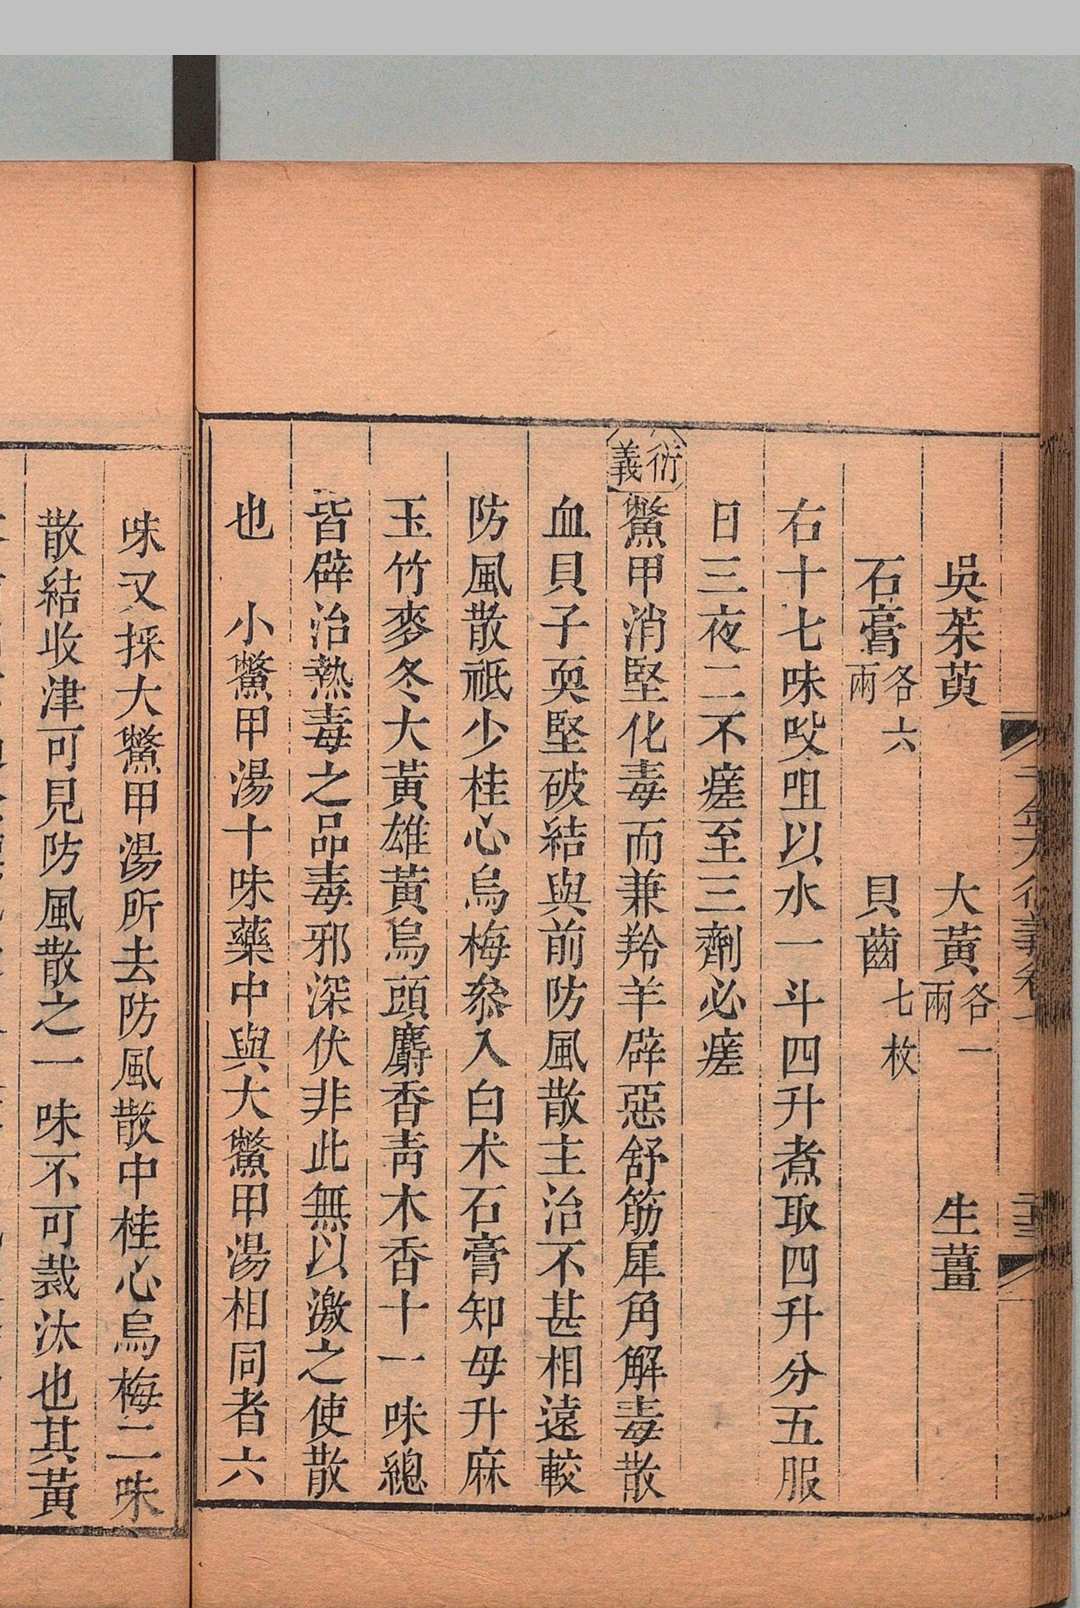 千金方衍義卷 二十三
吳茱萸 大黃各一兩 生薑
石膏各六兩 貝齒七枚
右十七味㕮咀以水一斗四升煮取四升分五服
日三夜二不瘥至三劑必瘥
衍義 鱉甲消堅化毒而兼羚羊辟惡舒筋犀角解毒散
血貝子耎堅破結與前防風散主治不甚相遠較
防風散祇少桂心烏梅叅入白朮石膏知母升麻
玉竹麥冬大黃雄黃烏頭麝香靑木香十一味總
皆辟治熱毒之品毒邪深伏非此無以激之使散
也 小鱉甲湯十味藥中與大鱉甲湯相同者六
味又採大鱉甲湯所去防風散中桂心烏梅二味
散結收津可見防風散之一味不可裁汰也其黃